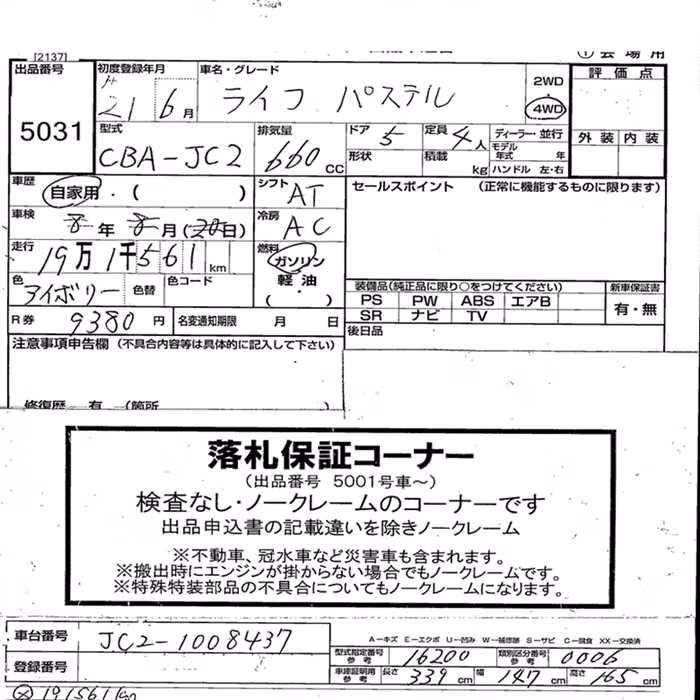 [2137]
① 会場用
出品番号 5031
初度登録年月 H 21 6月
車名・グレード ライフ パステル
2WD 4WD
評価点
外装 内装
型式 CBA-JC2
排気量 660 CC
ドア 5
定員 4人
ディーラー・並行
形状
積載 kg
モデル年式 年
ハンドル 左・右
車歴 自家用・( )
シフト AT
セールスポイント (正常に機能するものに限ります)
車検 8年 8月 (20日)
冷房 AC
走行 19万1千561 km
燃料 ガソリン 軽油 ( )
色 アイボリー 色替 色コード
装備品(純正品に限り○をつけてください)
新車保証書
PS PW ABS エアB
有・無
SR ナビ TV
R券 9380円
名変通知期限 月 日
後日品
注意事項申告欄(不具合内容等は具体的に記入して下さい)
修復歴 有 (箇所 )
落札保証コーナー
(出品番号 5001号車~)
検査なし・ノークレームのコーナーです
出品申込書の記載違いを除きノークレーム
※不動車、冠水車など災害車も含まれます。
※搬出時にエンジンが掛からない場合でもノークレームです。
※特殊特装部品の不具合についてもノークレームになります。
車台番号 JC2-1008437
A-キズ E-エクボ U-凹み W-補修跡 S-サビ C-腐食 XX-交換済
型式指定番号 参考 16200
類別区分番号 参考 0006
登録番号
車庫証明用 参考 長さ 339 cm 幅 147 cm 高さ 165 cm
191561km